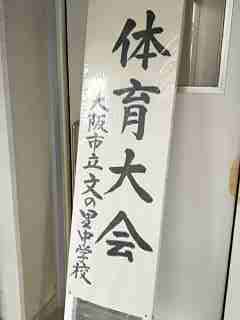 体育大会
大阪市立文の里中学校